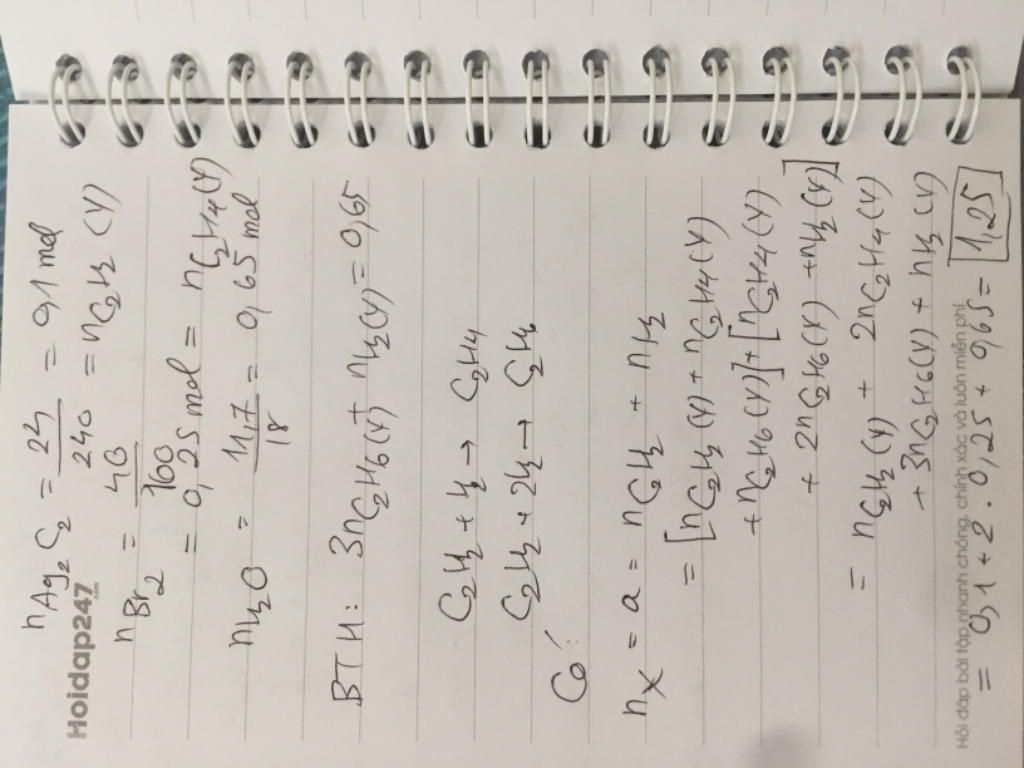 nAg2C2 = 24/240 = 0,1 mol
= nC2H2 (Y)
nBr2 = 40/160
= 0,25 mol = nC2H4(Y)
nH2O = 11,7/18 = 0,65 mol
BTH: 3nC2H6(Y) + nH2(Y) = 0,65
C2H2 + H2 → C2H4
C2H2 + 2H2 → C2H6
Có:
nX = a = nC2H2 + nH2
= [nC2H2(Y) + nC2H4(Y)
+ nC2H6(Y)] + [nC2H4(Y)
+ 2nC2H6(Y) + nH2(Y)]
= nC2H2(Y) + 2nC2H4(Y)
+ 3nC2H6(Y) + nH2(Y)
= 0,1 + 2 . 0,25 + 0,65 = 1,25
Hoidap247
.com
Hỏi đáp bài tập nhanh chóng, chính xác và luôn miễn phí